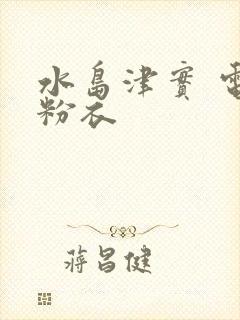 水島津實 電
粉衣
蔣昌健